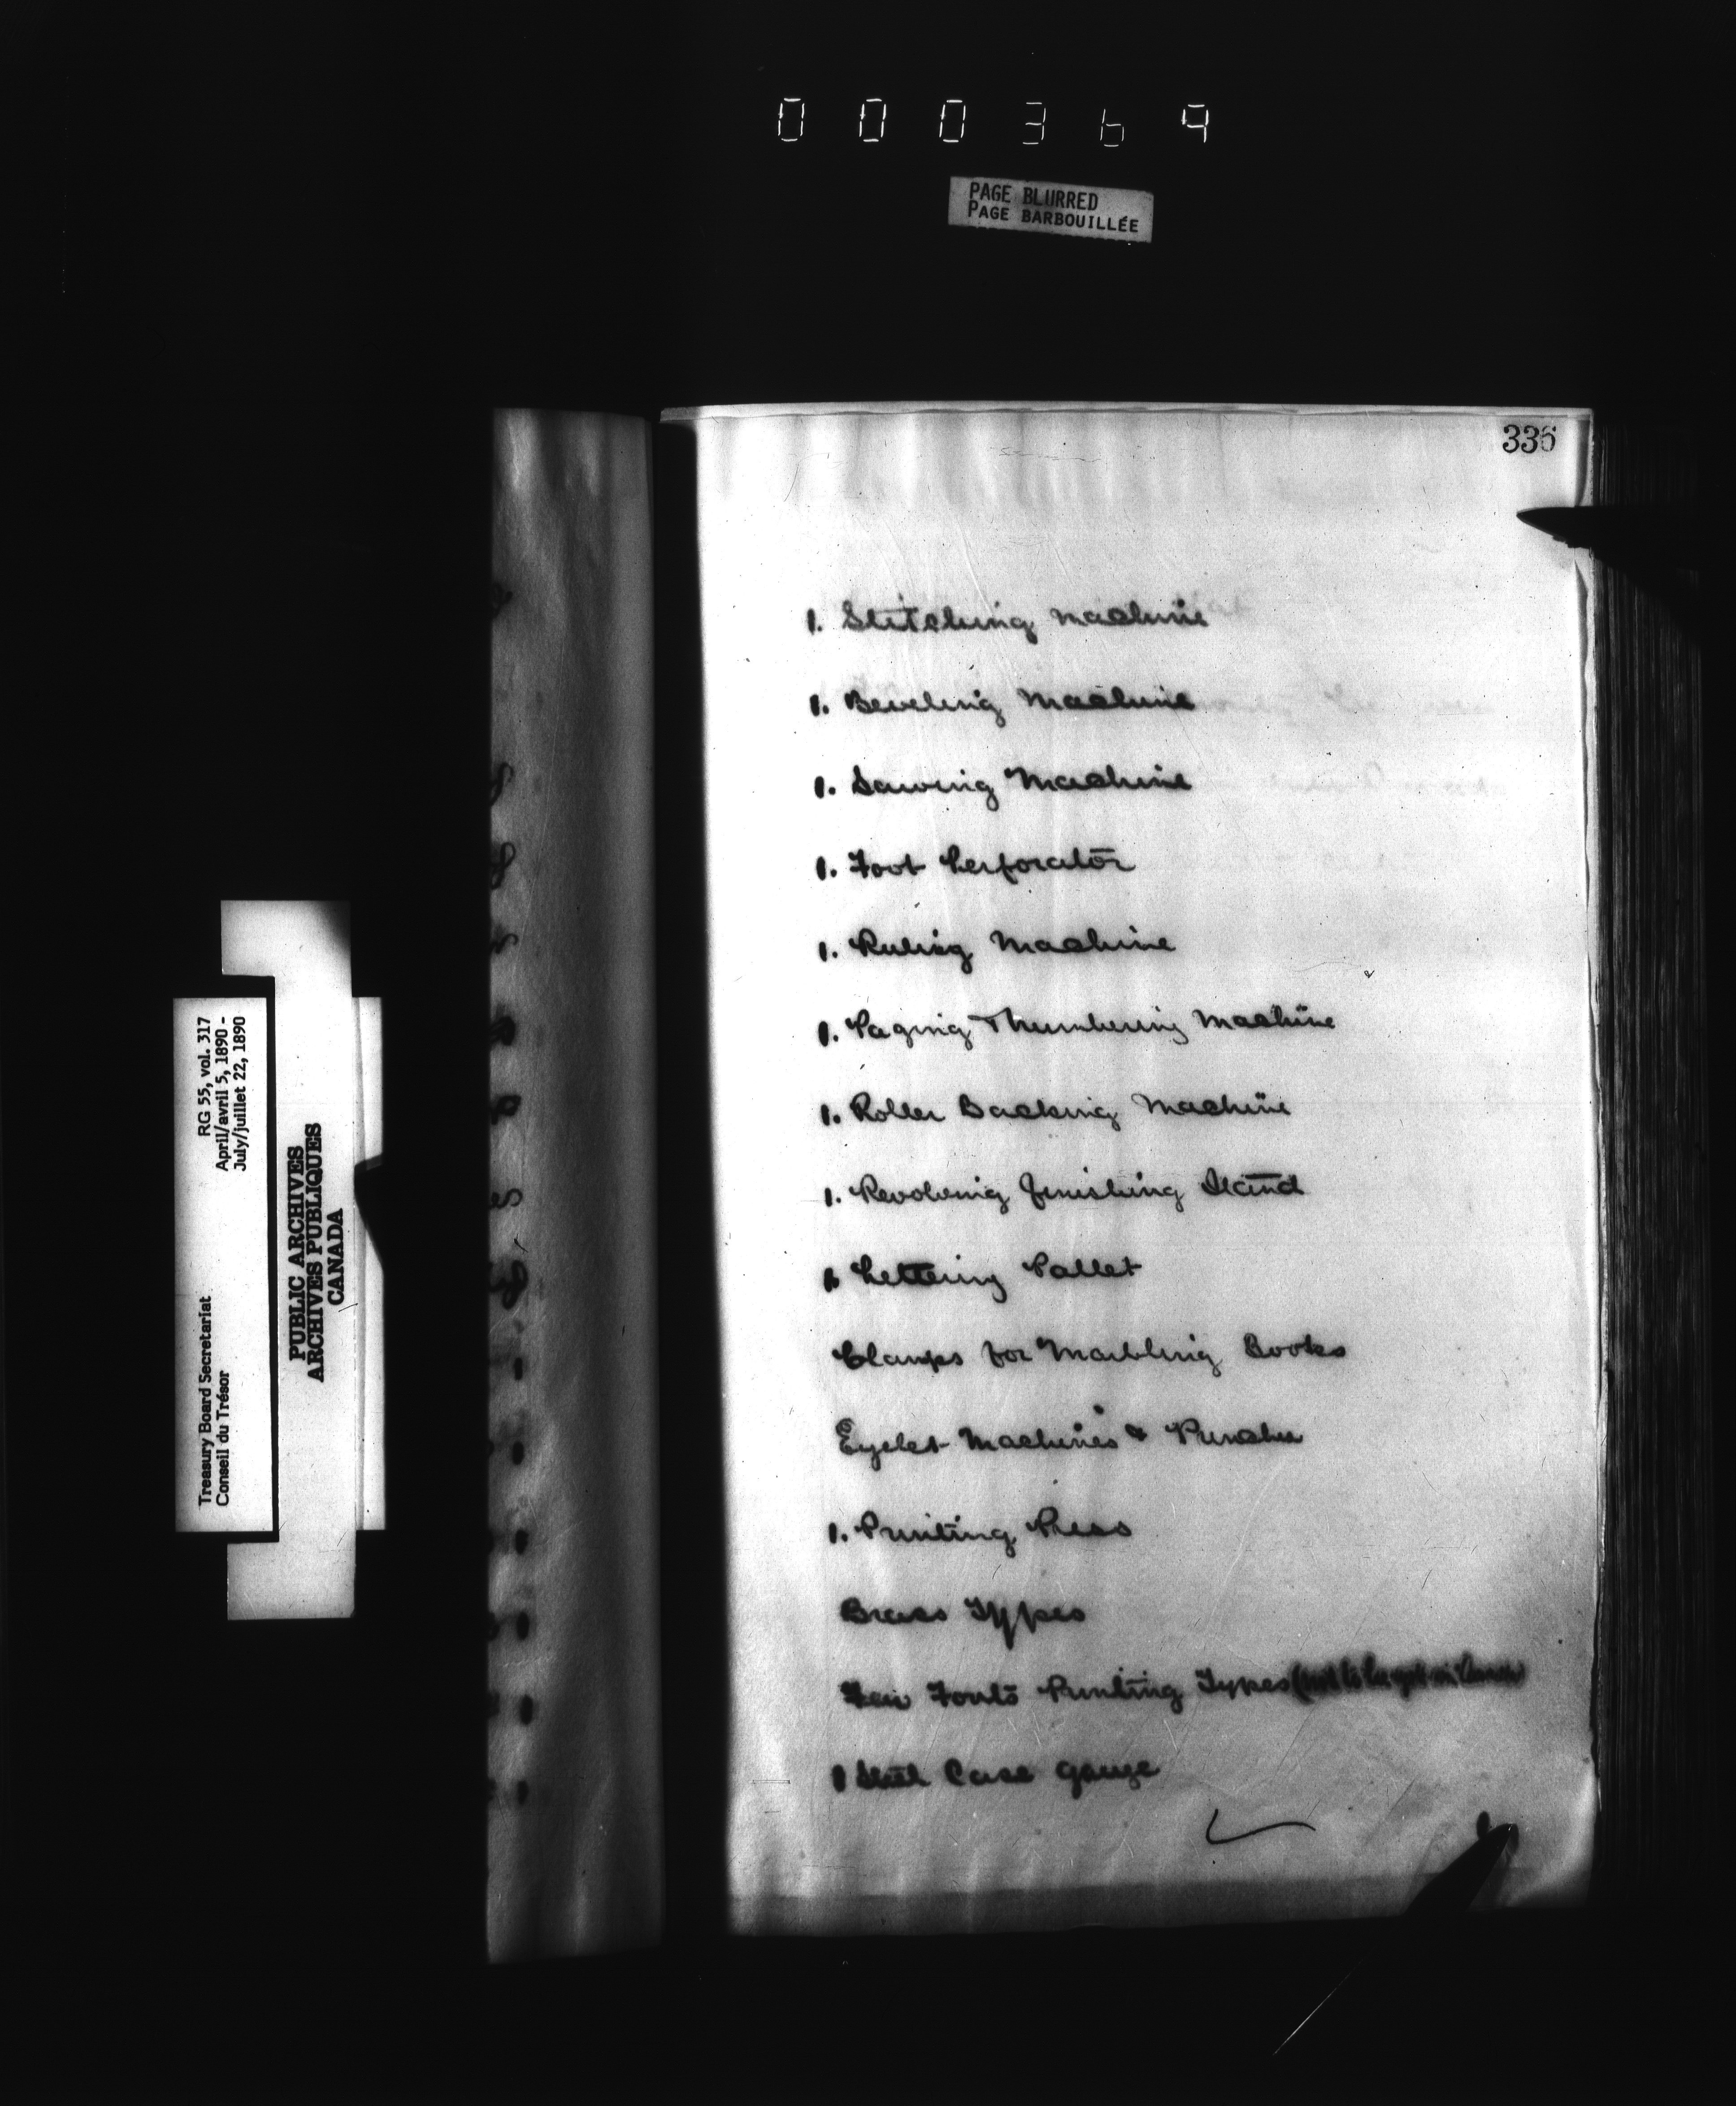 000369
PAGE BLURRED
PAGE BARBOUILLÉE
336
1. Stitching Machine
1. Beveling Machine
1. Sawing Machine
1. Foot Perforator
1. Ruling Machine
1. Paging & Numbering Machine
1. Roller Backing Machine
1. Revolving finishing Stand
1. Lettering Pallet
Clamps for Marbling Books
Eyelet Machines & Punches
1. Printing Press
Brass Types
Few Fonts Printing Types (not to be got in
1 Steel Case Gauge
RG 55, vol. 317
April/avril 5, 1890 -
July/juillet 22, 1890
Treasury Board Secretariat
Conseil du Trésor
PUBLIC ARCHIVES
ARCHIVES PUBLIQUES
CANADA